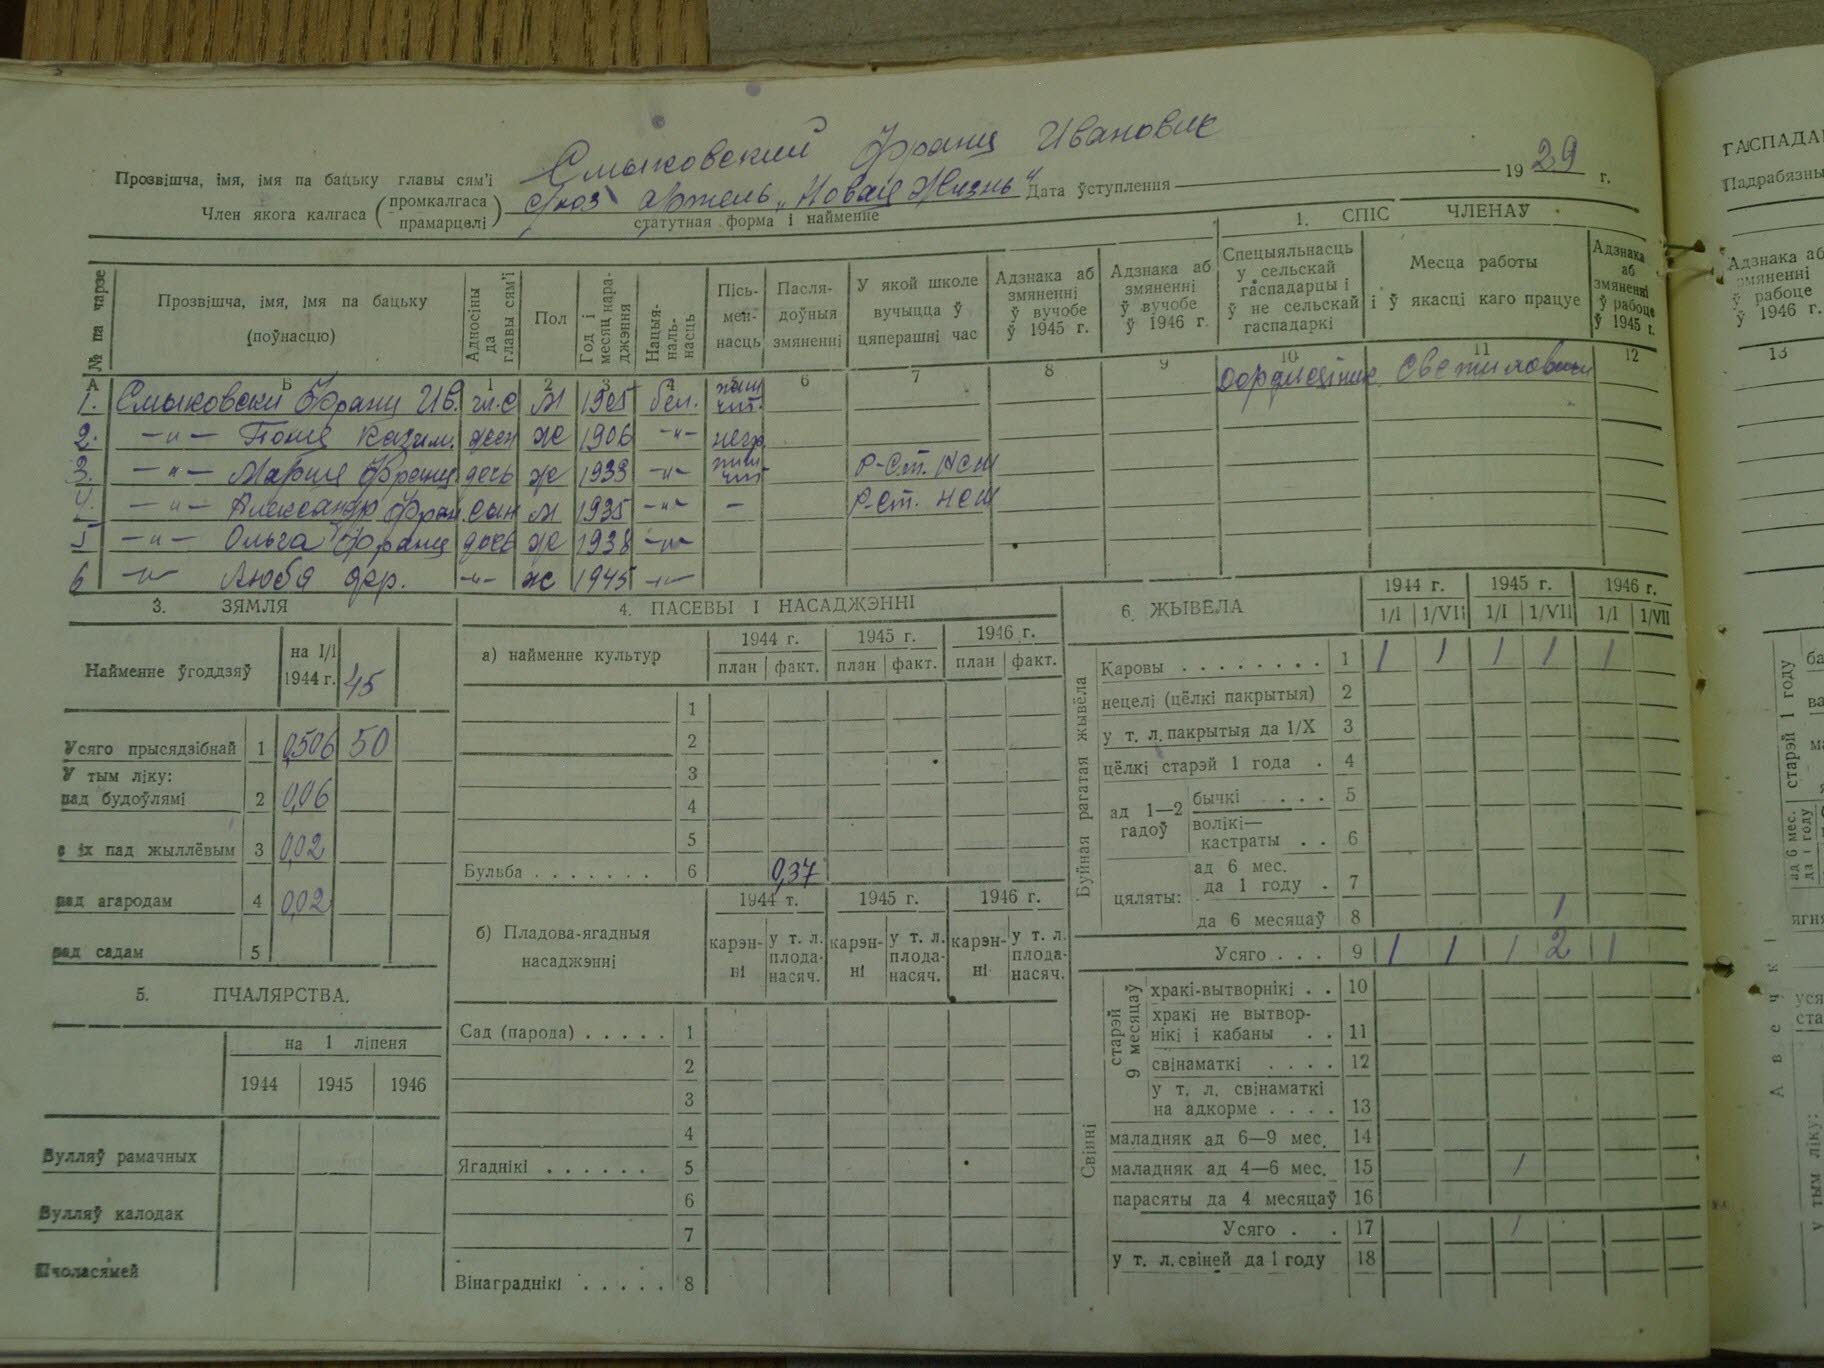 Смыковский Франц Иванович
Прозвішча, імя, імя па бацьку главы сям'і
19 29 г.
Член якога калгаса (промкалгаса прамарцелі) Артель „Новая Жизнь" Дата ўступлення
статутная форма і найменне
1. СПІС ЧЛЕНАЎ
№ па чарзе
Прозвішча, імя, імя па бацьку (поўнасцю)
Адносіны да главы сям'і
Пол
Год і месяц нараджэння
Нацыянальнасць
Пісьменнасць
Паслядоўныя змяненні
У якой школе вучыцца ў цяперашні час
Адзнака аб змяненні ў вучобе ў 1945 г.
Адзнака аб змяненні ў вучобе ў 1946 г.
Спецыяльнасць у сельскай гаспадарцы і ў не сельскай гаспадаркі
Месца работы і ў якасці каго працуе
Адзнака аб змяненні ў рабоце ў 1945 г.
А Б 1 2 3 4 5 6 7 8 9 10 11 12
1. Смыковски Франц Ив. гл.с м 1905 бел.
2. –"– Казим. жен ж 1906 –"– негр.
3. –"– Мария Франц дочь ж 1933 –"– Р-Ст. НСШ
4. –"– Александр Фран. сын м 1935 –"– – Р-Ст. НСШ
5 –"– Ольга Франц дочь ж 1938 –"–
6 –"– Люба фр. –"– ж 1945 –"–
3. ЗЯМЛЯ
Найменне ўгоддзяў на 1/I 1944 г. 45
Усяго прысядзібнай 1 0,506 50
У тым ліку:
пад будоўлямі 2 0,06
з іх пад жыллёвым 3 0,02
пад агародам 4 0,02
пад садам 5
5. ПЧАЛЯРСТВА.
на 1 ліпеня
1944 1945 1946
Вулляў рамачных
Вулляў калодак
Пчоласямей
4. ПАСЕВЫ І НАСАДЖЭННІ
а) найменне культур
1944 г. 1945 г. 1946 г.
план факт. план факт. план факт.
1
2
3
4
5
Бульба . . . . . . . 6 0,37
б) Пладова-ягадныя насаджэнні
1944 г. 1945 г. 1946 г.
карэнні у т. л. пладанасяч. карэнні у т. л. пладанасяч. карэнні у т. л. пладанасяч.
Сад (парода) . . . . . 1
2
3
4
Ягаднікі . . . . . . 5
6
7
Вінаграднікі . . . . . 8
6. ЖЫВЕЛА
1944 г. 1945 г. 1946 г.
1/I 1/VII 1/I 1/VII 1/I 1/VII
Буйная рагатая жывёла
Каровы . . . . . . . . 1 1 1 1 1 1
нецелі (цёлкі пакрытыя) 2
у т. л. пакрытыя да 1/X 3
цёлкі старэй 1 года . 4
ад 1—2 гадоў
бычкі . . . . 5
волікі—кастраты . . 6
цяляты:
ад 6 мес. да 1 году . 7
да 6 месяцаў 8 1
Усяго . . . 9 1 1 1 2 1
Свінні
старэй 9 месяцаў
хракі-вытворнікі . . 10
хракі не вытворнікі і кабаны . . 11
свінаматкі . . . . 12
у т. л. свінаматкі на адкорме . . . . 13
маладняк ад 6—9 мес. 14
маладняк ад 4—6 мес. 15 1
парасяты да 4 месяцаў 16
Усяго . . 17 1
у т. л. свіней да 1 году 18
Адзнака аб змяненні ў рабоце ў 1946 г.
13
старэй 1 году
ад 6 мес. да 1 году
Авечкі
у тым ліку: